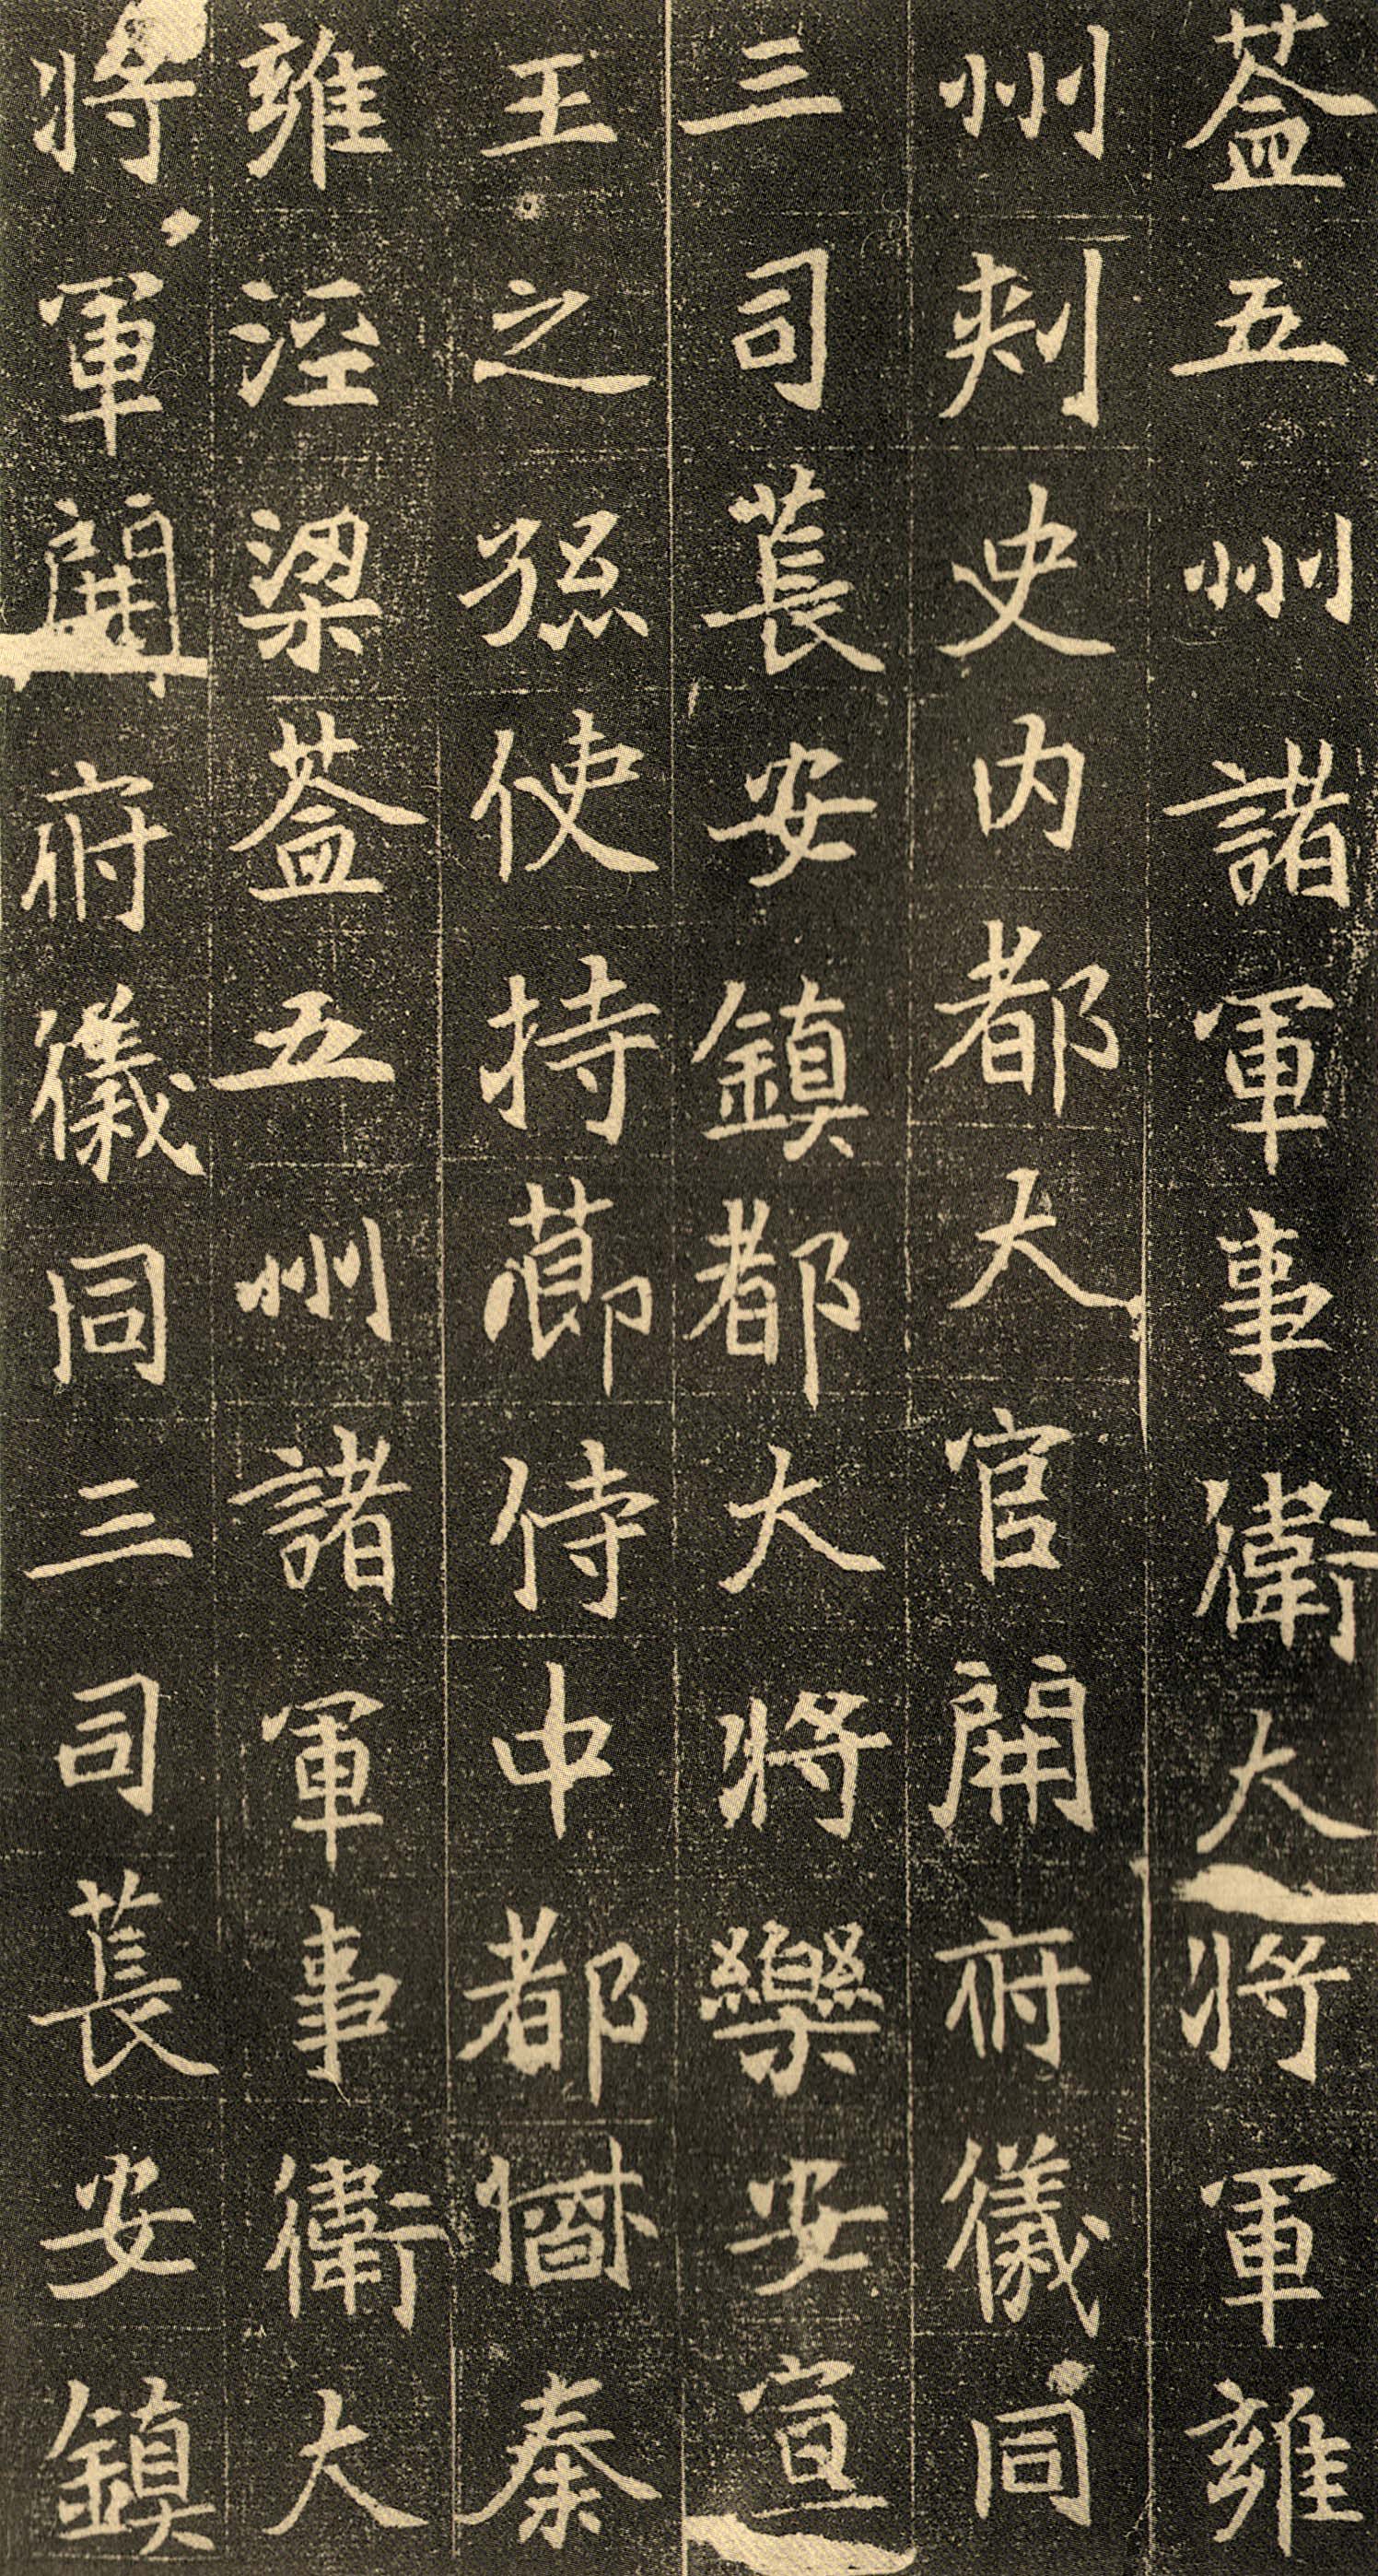 益五州諸軍事衛大將軍雍
州刺史内都大官開府儀同
三司萇安鎮都大將樂安宣
王之孫使持節侍中都督秦
雍涇梁益五州諸軍事衛大
將軍開府儀同三司萇安鎮